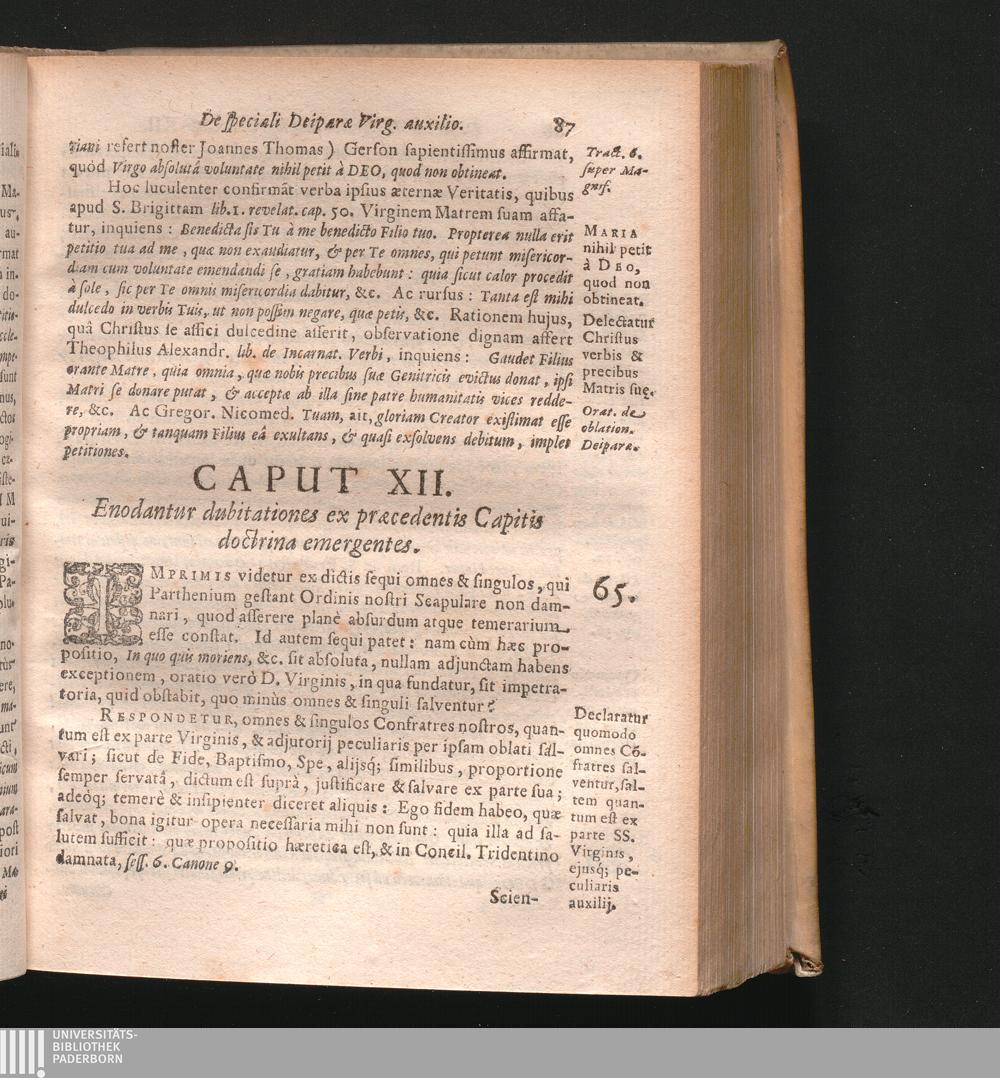 De ſpeciali Deiparæ Virg. auxilio. 87
riani refert noſter Joannes Thomas) Gerſon ſapientiſſimus affirmat,
quòd Virgo abſolutâ voluntate nihil petit à DEO, quod non obtineat.
Hoc luculenter confirmāt verba ipſius æternæ Veritatis, quibus
apud S. Brigittam lib. 1. revelat. cap. 50. Virginem Matrem ſuam affa-
tur, inquiens: Benedicta ſis Tu à me benedicto Filio tuo. Propterea nulla erit
petitio tua ad me, quæ non exaudiatur, & per Te omnes, qui petunt miſericor-
diam cum voluntate emendandi ſe, gratiam habebunt: quia ſicut calor procedit
à ſole, ſic per Te omnis miſericordia dabitur, &c. Ac rurſus: Tanta eſt mihi
dulcedo in verbis Tuis, ut non poſſim negare, quæ petis, &c. Rationem hujus,
quâ Chriſtus ſe affici dulcedine aſſerit, obſervatione dignam affert
Theophilus Alexandr. lib. de Incarnat. Verbi, inquiens: Gaudet Filius
orante Matre, quia omnia, quæ nobis precibus ſuæ Genitricis evictus donat, ipſi
Matri ſe donare putat, & acceptæ ab illa ſine patre humanitatis vices redde-
re, &c. Ac Gregor. Nicomed. Tuam, ait, gloriam Creator exiſtimat eſſe
propriam, & tanquam Filius eâ exultans, & quaſi exſolvens debitum, implet
petitiones.
Tract. 6.
ſuper Ma-
gnif.
MARIA
nihil petit
à DEO,
quod non
obtineat.
Delectatur
Chriſtus
verbis &
precibus
Matris ſuę.
Orat. de
oblation.
Deiparæ.
CAPUT XII.
Enodantur dubitationes ex præcedentis Capitis
doctrina emergentes.
IMPRIMIS videtur ex dictis ſequi omnes & ſingulos, qui
Parthenium geſtant Ordinis noſtri Scapulare non dam-
nari, quod aſſerere planè abſurdum atque temerarium
eſſe conſtat. Id autem ſequi patet: nam cùm hæc pro-
poſitio, In quo quis moriens, &c. ſit abſoluta, nullam adjunctam habens
exceptionem, oratio verò D. Virginis, in qua fundatur, ſit impetra-
toria, quid obſtabit, quo minùs omnes & ſinguli ſalventur?
65.
RESPONDETUR, omnes & ſingulos Confratres noſtros, quan-
tum eſt ex parte Virginis, & adjutorij peculiaris per ipſam oblati ſal-
vari; ſicut de Fide, Baptiſmo, Spe, alijsq; ſimilibus, proportione
ſemper ſervatâ, dictum eſt ſuprà, juſtificare & ſalvare ex parte ſua;
adeòq; temerè & inſipienter diceret aliquis: Ego fidem habeo, quæ
ſalvat, bona igitur opera neceſſaria mihi non ſunt: quia illa ad ſa-
lutem ſufficit: quæ propoſitio hæretica eſt, & in Concil. Tridentino
damnata, ſeſſ. 6. Canone 9.
Declaratur
quomodo
omnes Cō-
fratres ſal-
ventur, ſal-
tem quan-
tum eſt ex
parte SS.
Virginis,
ejusq; pe-
culiaris
auxilij.
Scien-
UNIVERSITÄTS-
BIBLIOTHEK
PADERBORN